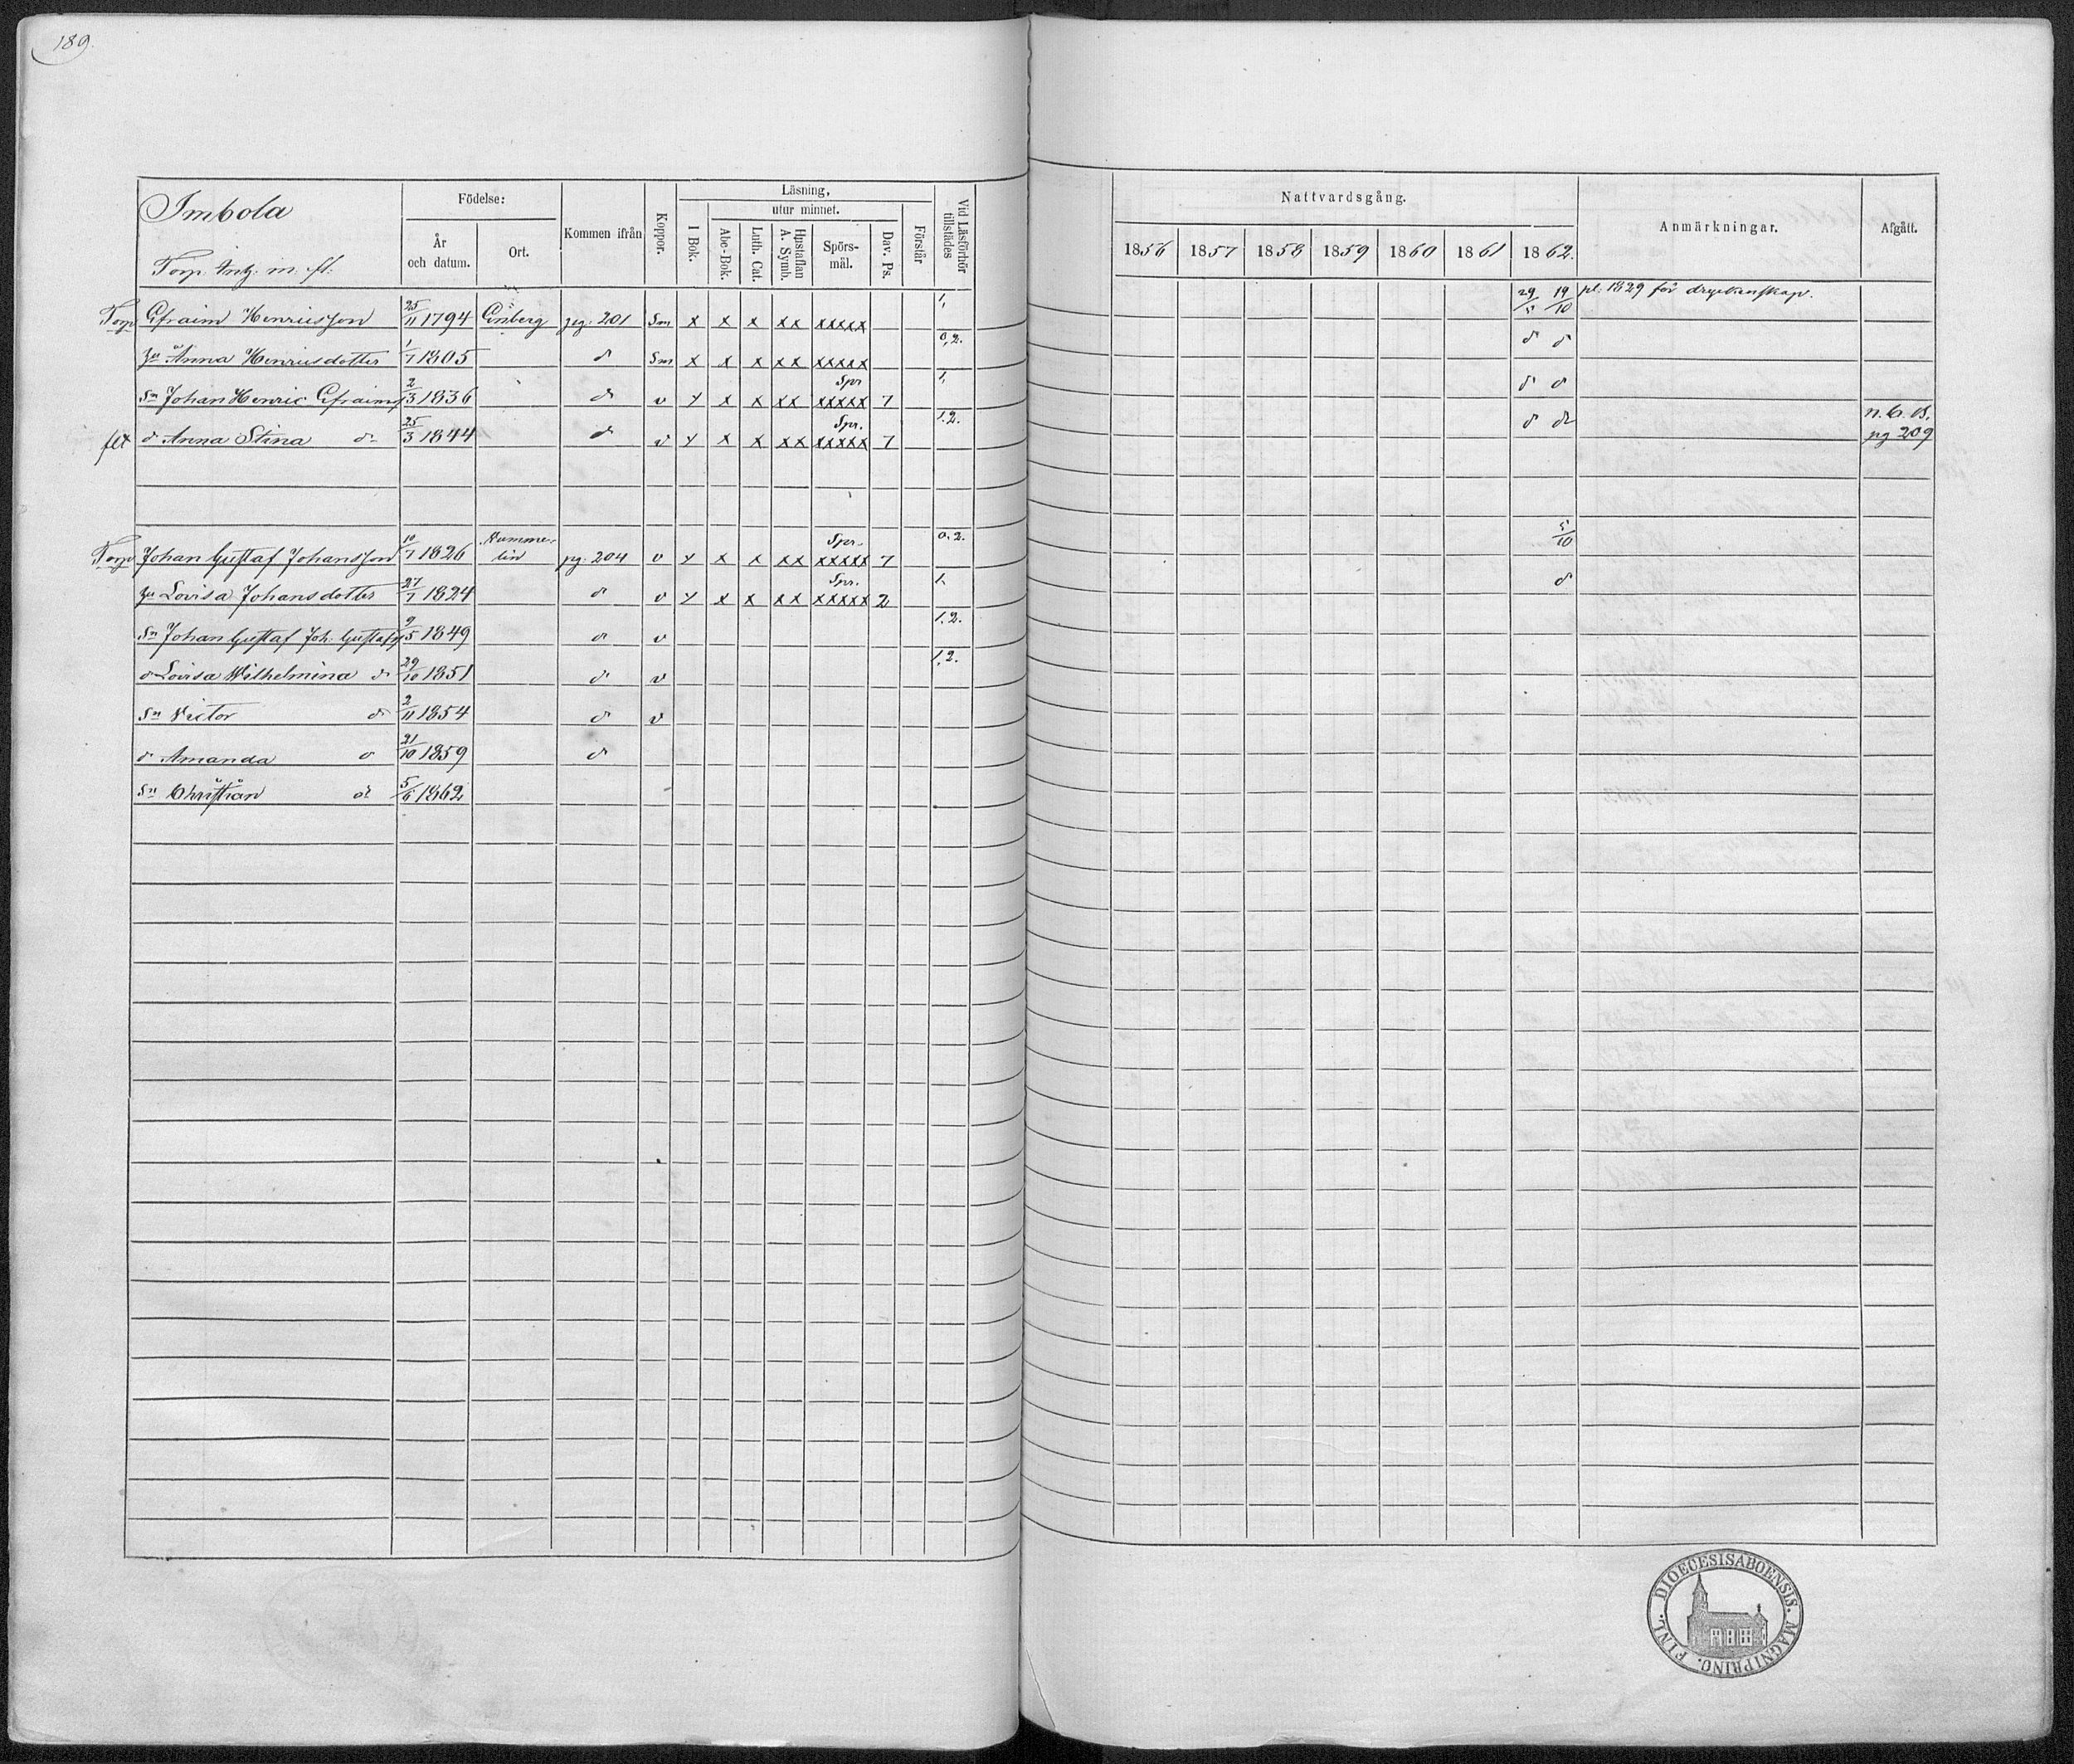 189.
Imbola
Torp. m. fl.
Födelse:
År
och datum.
Ort.
Kommen ifrån
Koppor.
Läsning,
I Bok.
utur minnet.
Abc-Bok.
Luth. Cat.
Hustaflan
A. Symb.
Spörs-
mål.
Dav. Ps.
Förstår
Vid Läsförhör
tillstädes
Nattvardsgång.
1856 1857 1858 1859 1860 1861 1862.
Anmärkningar.
Afgått.
Torp Efraim Henricsson 25/11 1794 pg. 201 Sm x x x xx xxxxx 1, 29/5 19/10 pl. 1829 för dryckenskap.
hu Anna Henricsdotter 1/7 1805 d Sm x x x xx xxxxx 0,2. d d
Sn Johan Henric Efraimss 2/3 1836 d v y x x xx Spr xxxxx 7 1, d d
d Anna Stina d 25/3 1844 d v y x x xx Spr. xxxxx 7 1.2. d d n. b. B.
pg 209
Torp Johan Gustaf Johansson 10/7 1826 Numme-
lin pg. 204 v y x x xx Spr. xxxxx 7 0.2. 5/10
hu Lovisa Johansdotter 27/7 1824 d v y x x xx Spr. xxxxx 2 1, d
Sn Johan Gustaf Joh. Gustafss 9/5 1849 d v 1.2.
d Lovisa Wilhelmina d 29/10 1851 d v 1,2.
Sn Victor d 2/11 1854 d v
d Amanda d 21/10 1859 d
Sn Christian d 5/6 1862
DIOECESIS ABOENSIS. MAGNI PRINC. FINL.